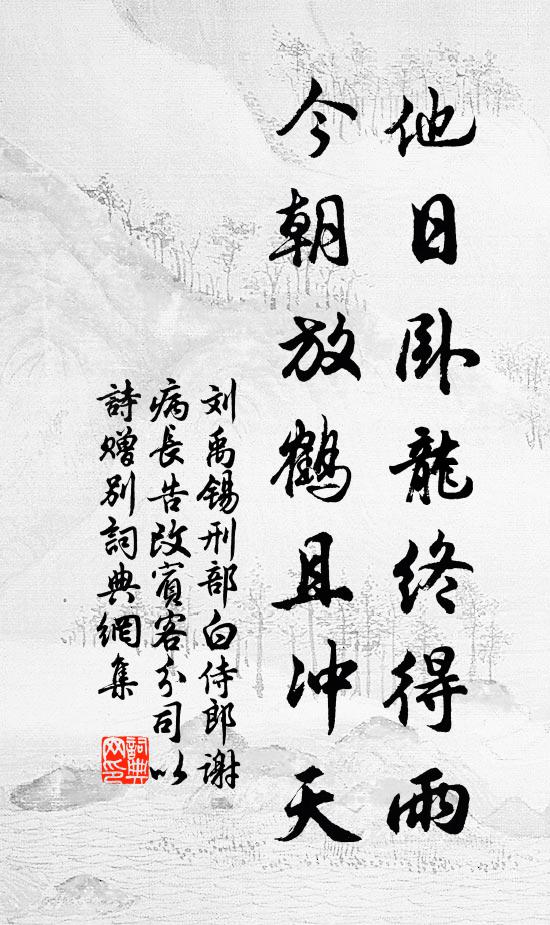 他日卧龍终得雨
今朝放鹤且冲天
刘禹锡刑部白侍郎谢
病長告改賓客分司以
詩赠别詞典網集
詞典
网印